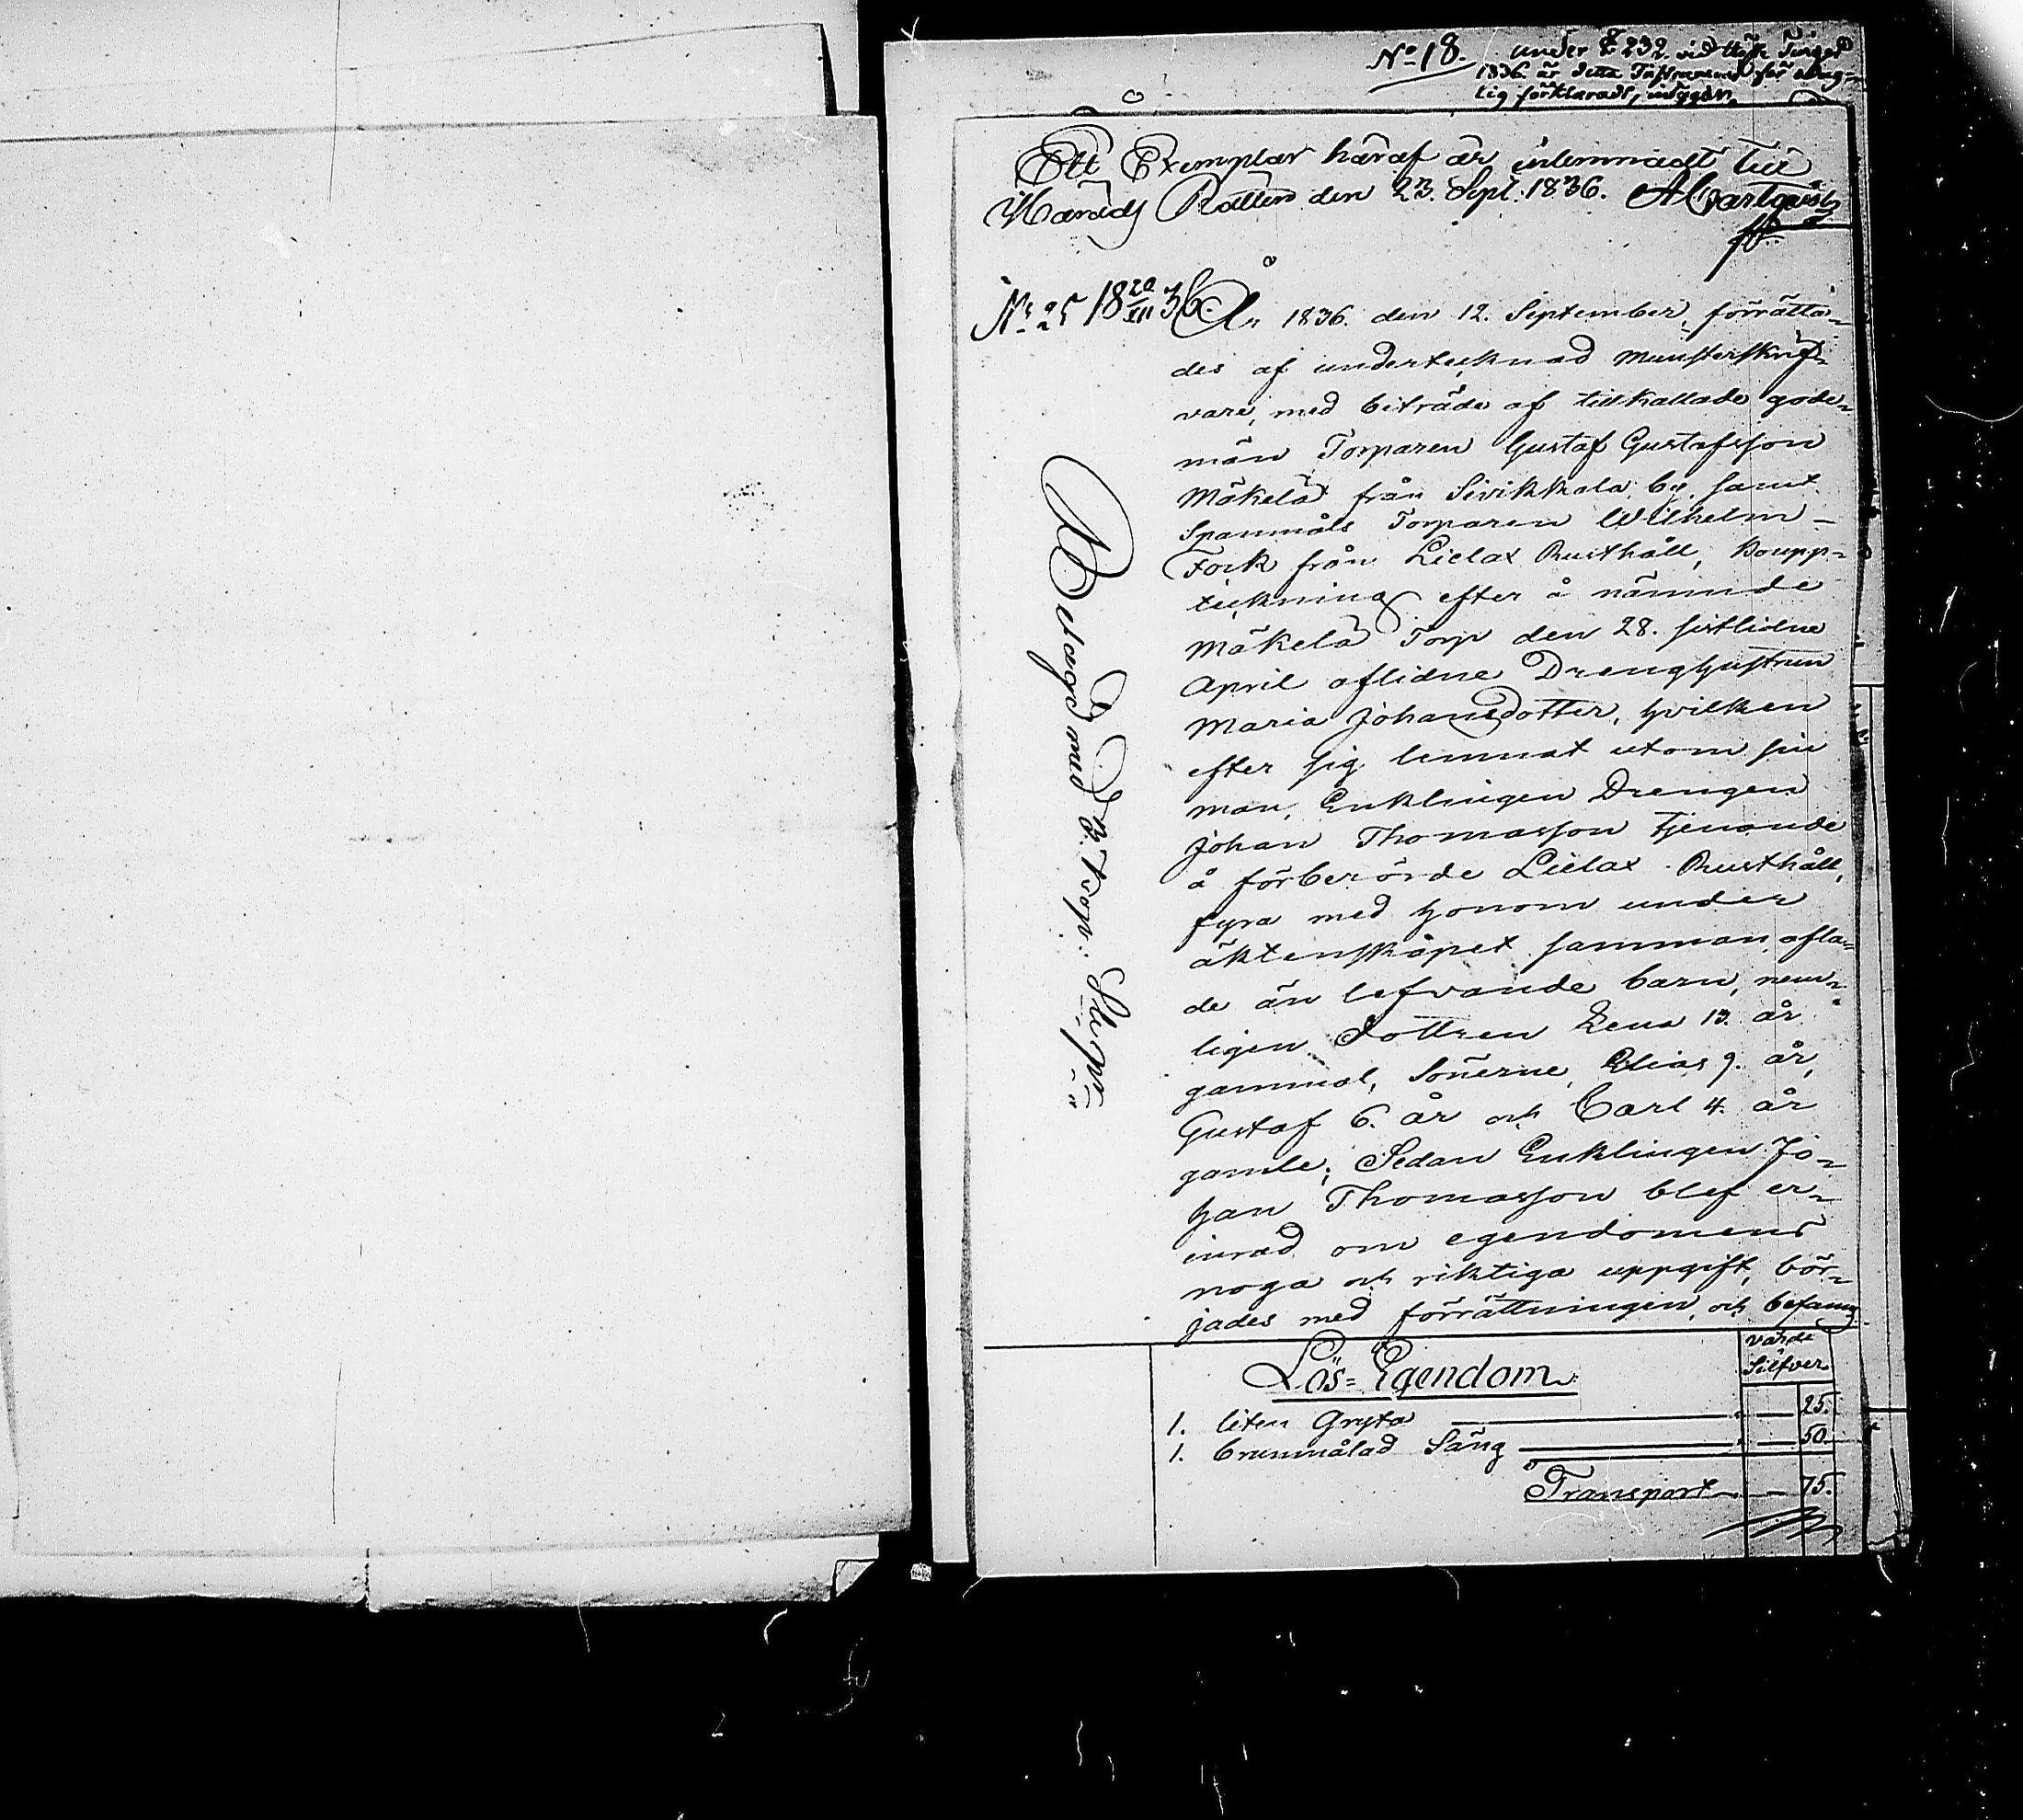 No 18. under § 232 vid Höste Tinget
1836 är detta Instrument för olag-
lig förklaradt, intygar,
Ett Exemplar häraf är inlemnadt till
Härads Rätten den 23. Sept. 1836. A Carlqvist
No 25 18 20/XII 36.
År 1836. den 12. September, förrätta-
des af undertecknad munsterskrif-
vare, med biträde af tillkallade gode-
män Torparen Gustaf Gustafsson
Mäkelä från Sirikkala by, samt
Spannmåls Torparen Wilhelm
Fork från Lielax Rusthåll, boupp-
teckning efter å nämnde
Mäkelä Torp den 28. sistlidne
April aflidne Drenghustrun
Maria Johansdotter, hvilken
efter sig lemnat utom sin
man, Enklingen Drengen
Johan Thomasson tjenande
å förberörde Lielax Rusthåll,
fyra med honom under
äktenskapet samman afla-
de än lefvande barn, nem-
ligen Dottren Lena 13. år
gammal, Sönerne, Elias 9. år,
Gustaf 6. år och Carl 4. år
gamle; Sedan Enklingen Jo-
han Thomasson blef er-
inrad om egendomens
noga och riktiga uppgift, bör-
jades med förrättningen, och befanns
Belagd med
Lös-Egendom
värde
Silfver
1. liten Gryta 25.
1. brunmålad Säng 50.
Transport 75.